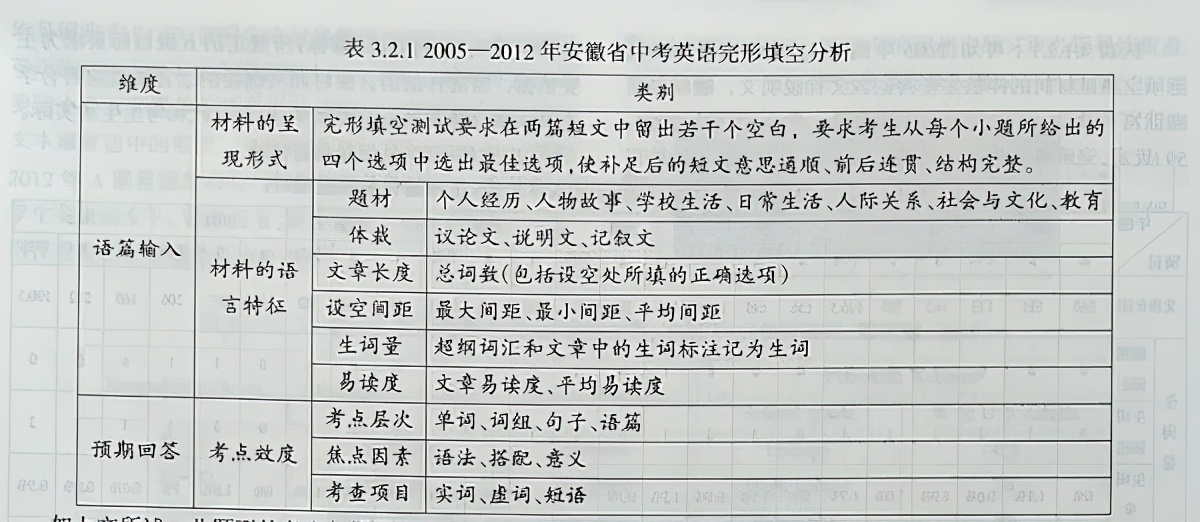 表 3.2.1 2005—2012 年安徽省中考英语完形填空分析
维度 类别
语篇输入
材料的呈
现形式
完形填空测试要求在两篇短文中留出若干个空白，要求考生从每个小题所给出的
四个选项中选出最佳选项,使补足后的短文意思通顺、前后连贯、结构完整。
材料的语
言特征
题材 个人经历、人物故事、学校生活、日常生活、人际关系、社会与文化、教育
体裁 议论文、说明文、记叙文
文章长度 总词数(包括设空处所填的正确选项)
设空间距 最大间距、最小间距、平均间距
生词量 超纲词汇和文章中的生词标注记为生词
易读度 文章易读度、平均易读度
预期回答 考点效度
考点层次 单词、词组、句子、语篇
焦点因素 语法、搭配、意义
考查项目 实词、虚词、短语